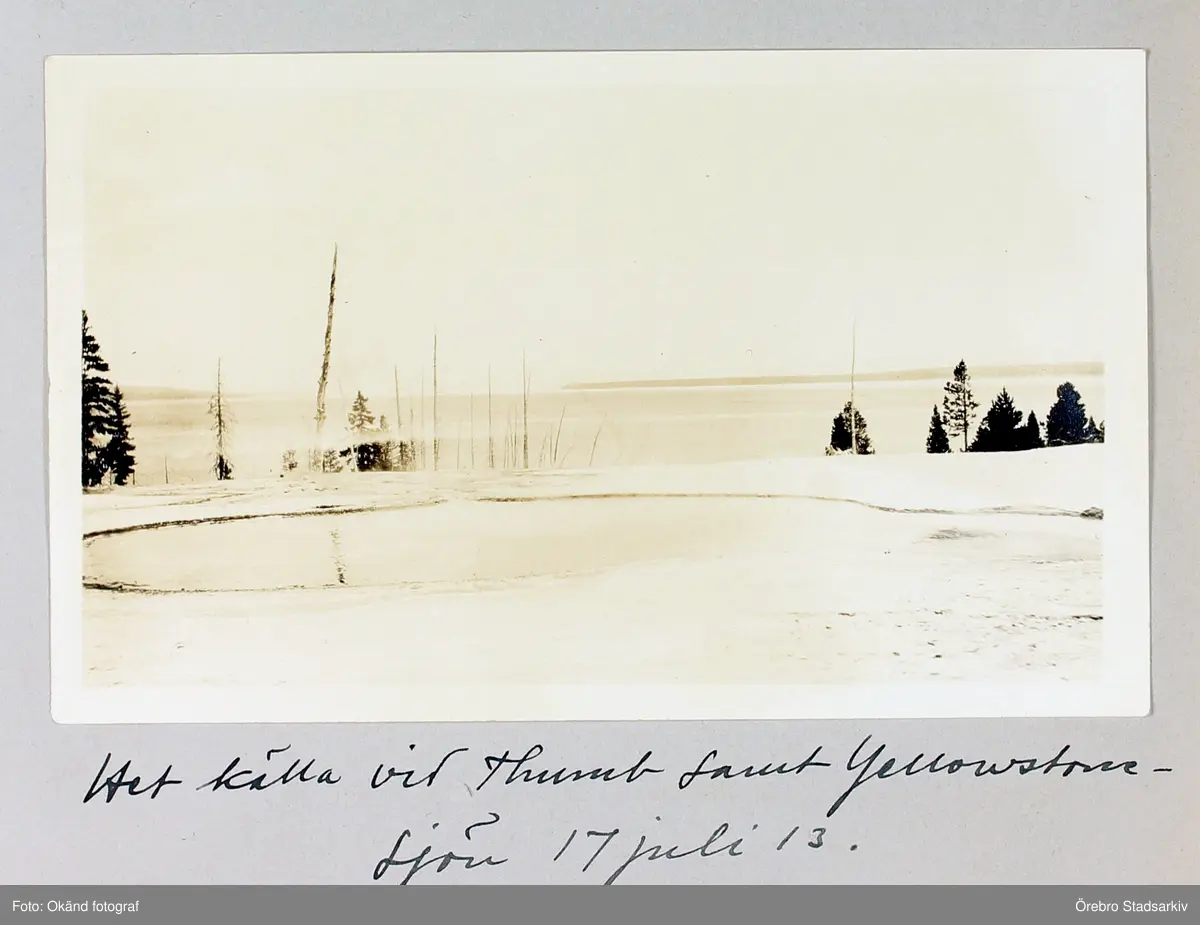 Het källa vid Thumb samt Yellowstone-
sjön 17 juli 13.
Foto: Okänd fotograf
Örebro Stadsarkiv